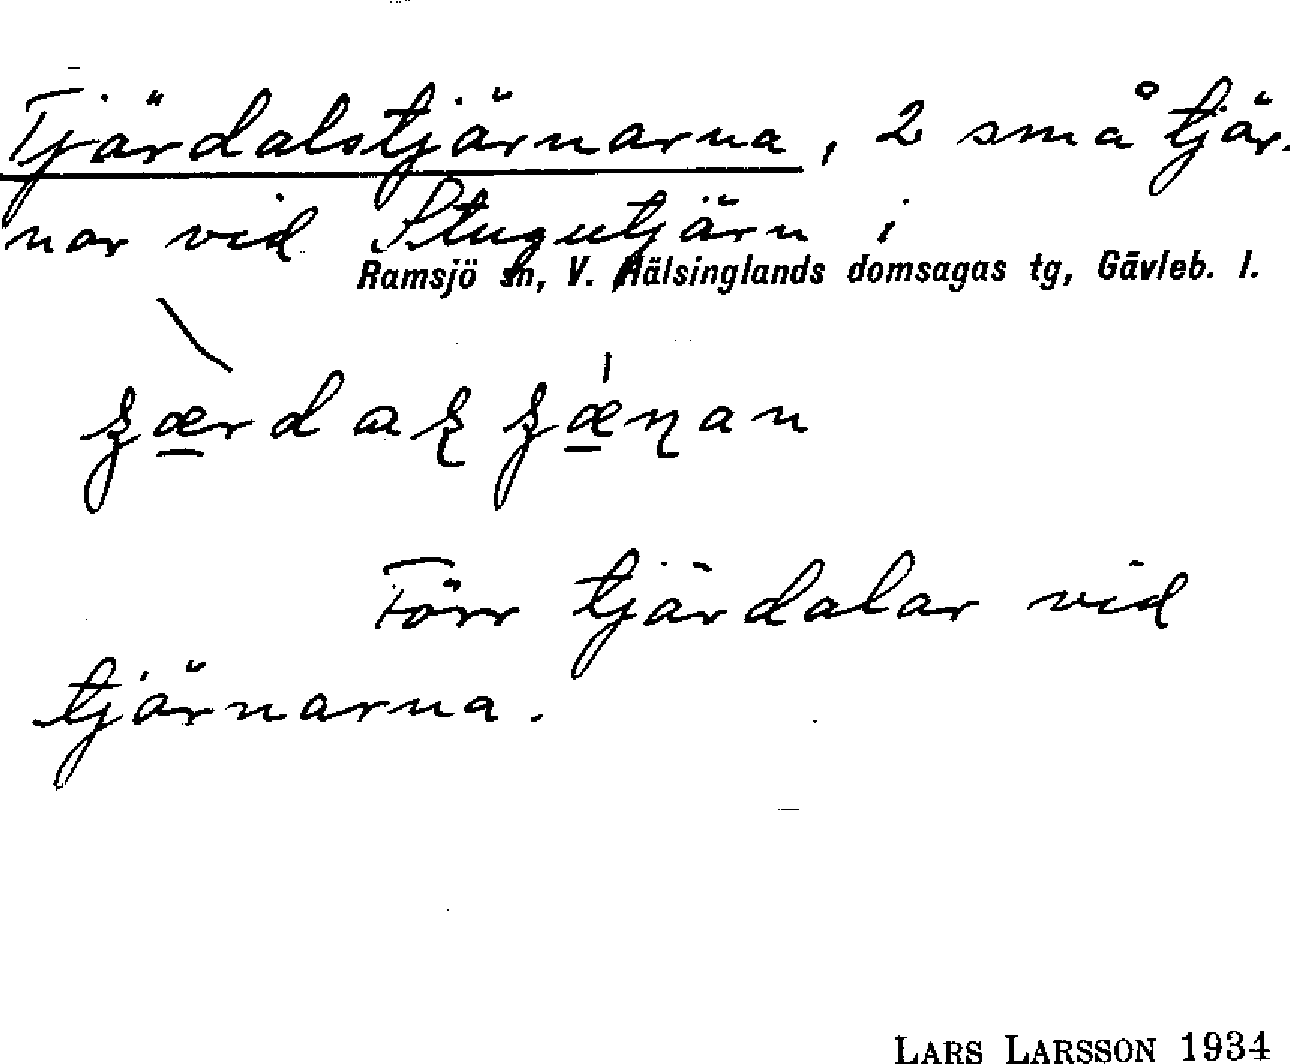 Tjärdalstjärnarna, 2 små tjär-
nar vid Stugutjärn i
Ramsjö sn, V. Hälsinglands domsagas tg, Gävleb. l.
Förr tjärdalar vid
tjärnarna.
LARS LARSSON 1934